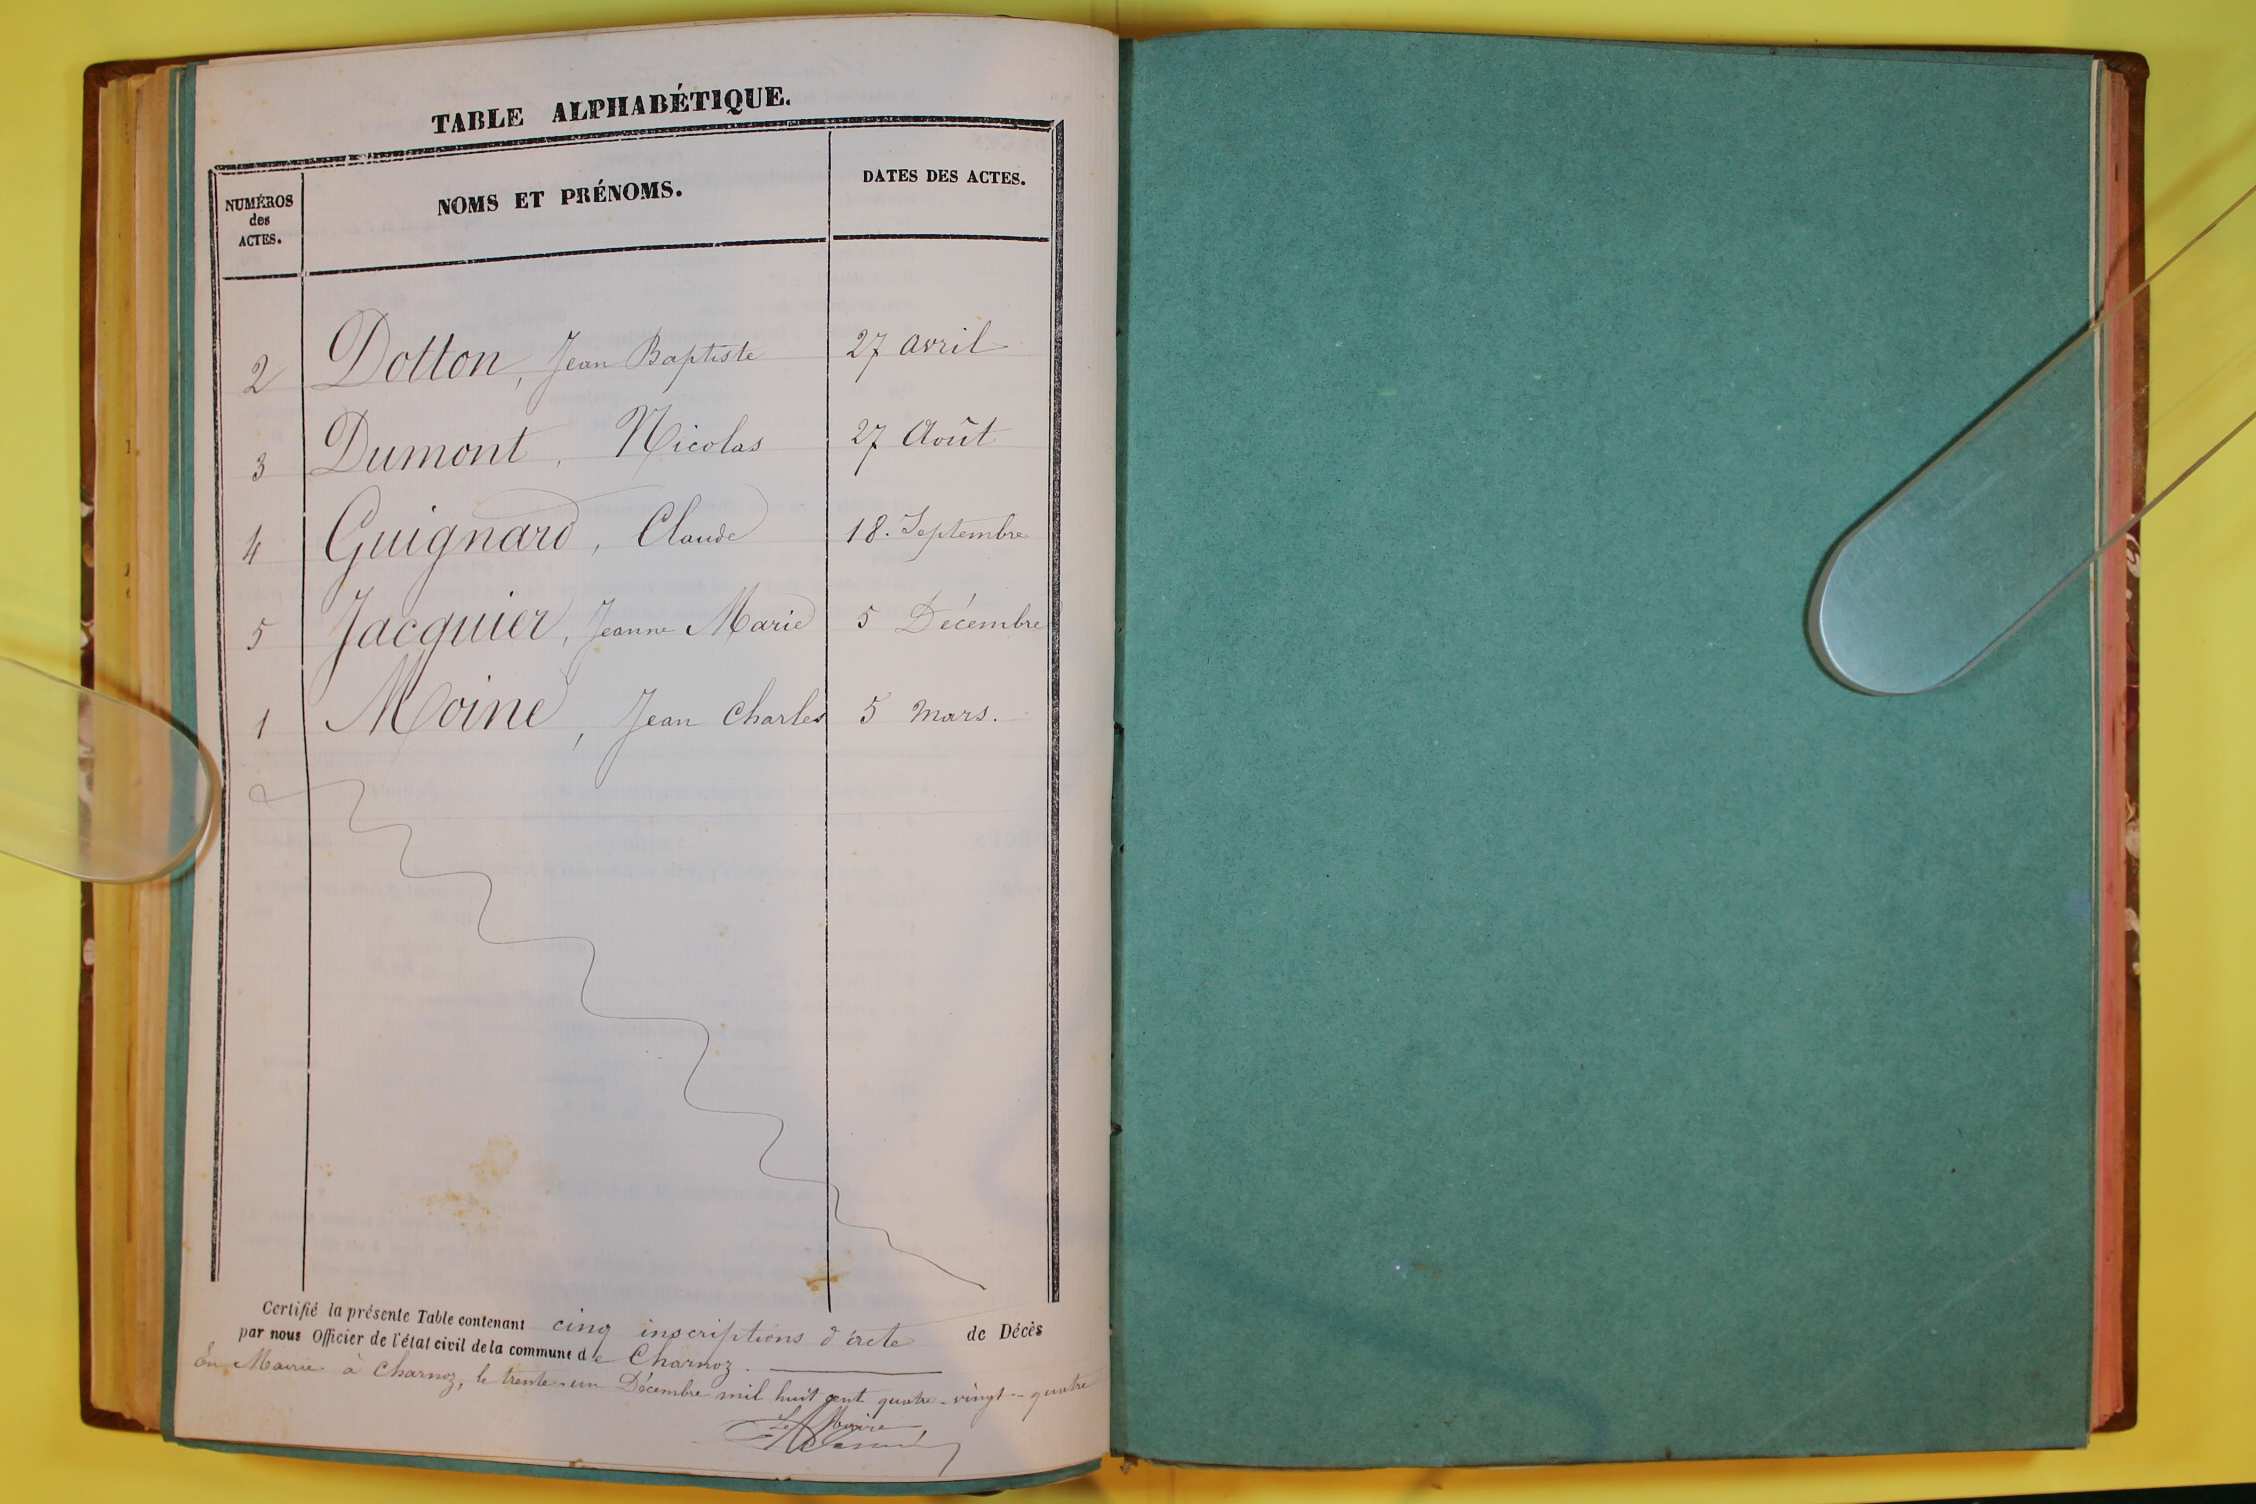 TABLE ALPHABÉTIQUE.
NUMÉROS des ACTES. NOMS ET PRÉNOMS. DATES DES ACTES.
2 Dotton, Jean Baptiste 27 avril
3 Dumont, Nicolas 27 Août
4 Guignard, Claude 18. Septembre
5 Jacquier, Jeanne Marie 5 Décembre
1 Moine, Jean Charles 5 mars.
Certifié la présente Table contenant cinq inscriptions d'acte de Décès
par nous Officier de l'état civil de la commune de Charnoz.
En Mairie à Charnoz, le trente-un Décembre mil huit cent quatre-vingt-quatre
Le Maire